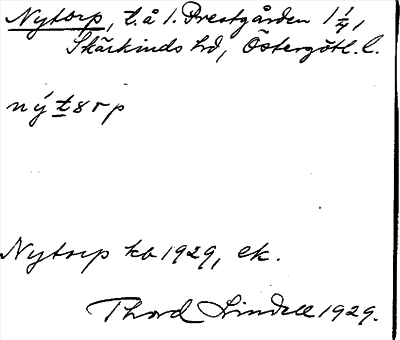 Nytorp, t. å 1. Prestgården 1 1/4,
Skärkinds hd, Östergötl. l.
ny´ t8rp
Nytorp kb 1929, ek.
Thord Lindell 1929.